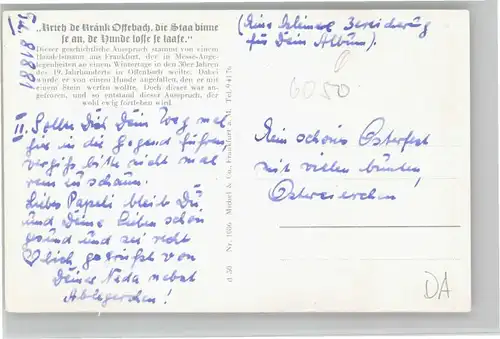 „Kriech de Kränk Offebach, die Staa binne
se an, de Hunde losse se laafe."
Dieser geschichtliche Ausspruch stammt von einem
Handelsmann aus Frankfurt, der in Messe-Ange-
legenheiten an einem Wintertage in den 30er Jahren
des 19. Jahrhunderts in Offenbach weilte. Dabei
wurde er von einem Hunde angefallen, den er mit
einem Stein werfen wollte. Doch dieser war an-
gefroren, und so entstand dieser Ausspruch, der
wohl ewig fortleben wird
II. Sollte Dich Dein Weg mal
hier in die Gegend führen
vergiß bitte nicht mal
rein zu schaun.
Liebes Papeli bleib Du
und Deine Lieben schön
gsund und sei recht
lich gegrüßt von
Deiner Neda nebst
Ablegerchen!
d 50 Nr. 105a Michel & Co., Frankfurt a. M. Tel. 94176
(Eine kleine Bereicherung
für Dein Album).
6050
Ein schönes Osterfest
mit vielen bunten
Ostereierchen!
DA